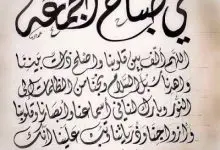 في صباح الجمعة
اللهم ألف بين قلوبنا وأصلح ذات بيننا
واهدنا سبل السلام ونجنا من الظلمات إلى
النور وبارك لنا في أسماعنا وأبصارنا وقلوبنا
وأزواجنا وذرياتنا وتب علينا إنك